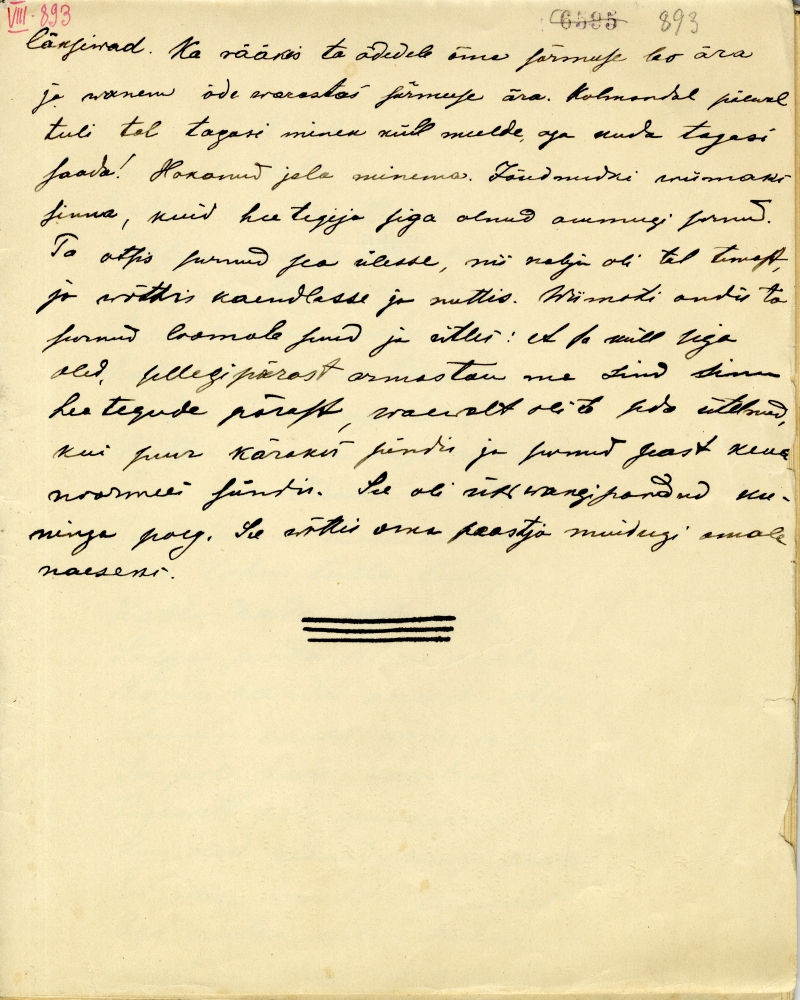 VIII-893
6595 893
läksiwad. Ka rääkis ta õdedele oma sõrmuse loo ära
ja wanem õde warastas sõrmuse ära. Kolmandal päewal
tuli tal tagasi minek küll meelde, aga kuda tagasi
saada! Hakanud jala minema. Jõudnudki wiimaks
sinna, kuid hea tegija siga olnud ammugi surnud.
Ta otsis surnud sea ülesse, nii kahju oli tal temast,
ja wõttis kaendlasse ja nuttis. Wiimaks andis ta
surnud loomale suud ja ütles: et sa küll siga
oled, sellegipärast armastan ma sind sinu
hea tegude pärast, waewalt oli ta seda ütelnud,
kui suur kärakas sündis ja surnud seast kena
noormees sündis. See oli üks wangipandud ku-
ninga poeg. See wõttis oma päästja muidugi omale
naeseks.